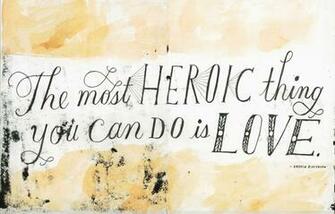 The most HEROIC thing
you can DO is LOVE.